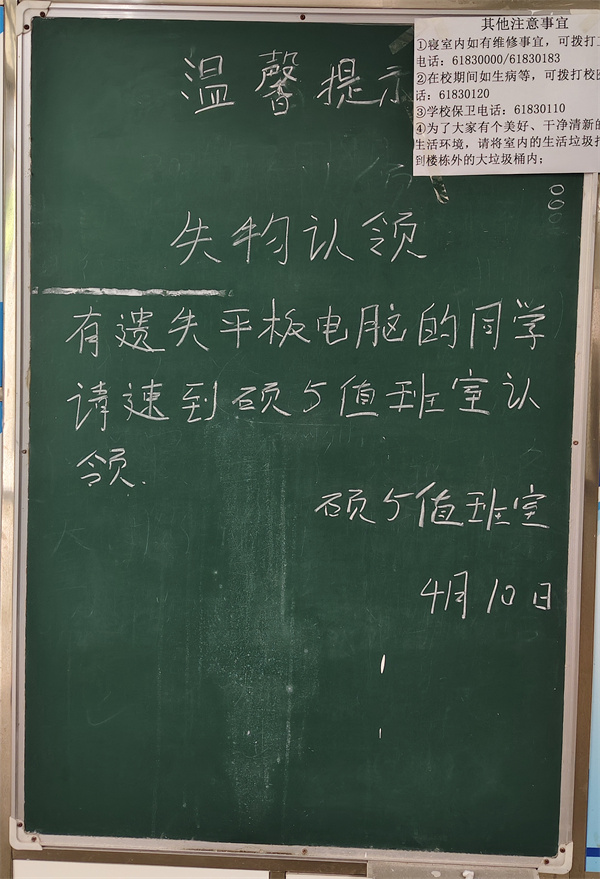 温馨提示
其他注意事宜
①寝室内如有维修事宜,可拨打
电话:61830000/61830183
②在校期间如生病等,可拨打校
话:61830120
③学校保卫电话:61830110
④为了大家有个美好、干净清新的
生活环境,请将室内的生活垃圾
到楼栋外的大垃圾桶内;
失物认领
有遗失平板电脑的同学
请速到硕5值班室认
领.
硕5值班室
4月10日